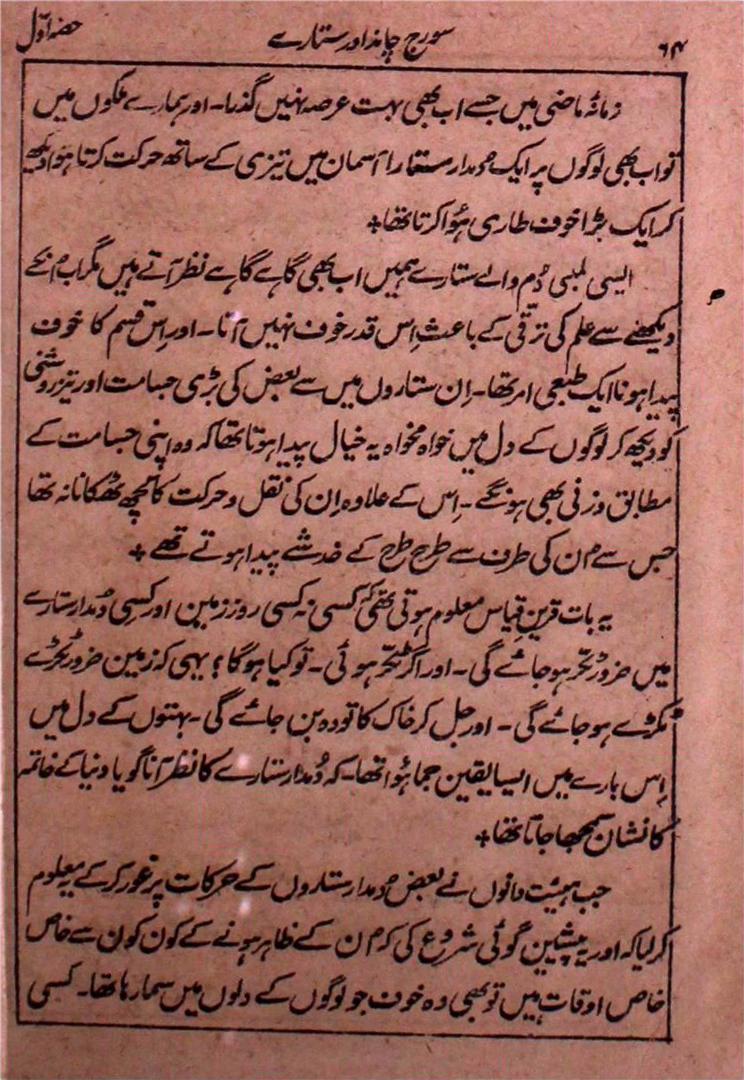 ۶۴ سورج چاند اور ستارے حصہ اول
زمانہ ماضی میں جسے اب بھی بہت عرصہ نہیں گذرا۔ اور ہمارے ملکوں میں
تو اب بھی لوگوں پر ایک دُمدار ستارا آسمان میں تیزی کے ساتھ حرکت کرتا ہوا دیکھ
کر ایک بڑا خوف طاری ہُوا کرتا تھا +
ایسی لمبی دُم والے ستارے ہمیں اب بھی گاہے گاہے نظر آتے ہیں مگر اب اُنکے
دیکھنے سے علم کی ترقی کے باعث اِس قدر خوف نہیں آتا۔ اور اِس قسم کا خوف
پیدا ہونا ایک طبعی امر تھا۔ اِن ستاروں میں سے بعض کی بڑی جسامت اور تیز روشنی
کو دیکھ کر لوگوں کے دل میں خواہ مخواہ یہ خیال پیدا ہوتا تھا کہ وہ اپنی جسامت کے
مطابق وزنی بھی ہونگے۔ اِس کے علاوہ اِن کی نقل و حرکت کا کچھ ٹھکانا نہ تھا
جس سے اُن کی طرف سے طرح طرح کے خدشے پیدا ہوتے تھے +
یہ بات قرینِ قیاس معلوم ہوتی تھی کہ کسی نہ کسی روز زمین اور کسی دُمدار ستارے
میں ضرور ٹکر ہو جائے گی۔ اور اگر ٹکر ہوئی۔ تو کیا ہوگا؟ یہی کہ زمین ضرور ٹکڑے
ٹکڑے ہو جائے گی۔ اور جل کر خاک کا تودہ بن جائے گی۔ بہتوں کے دل میں
اِس بارے میں ایسا یقین جما ہُوا تھا۔ کہ دُمدار ستارے کا نظر آنا گویا دنیا کے خاتمہ
کا نشان سمجھا جاتا تھا +
جب ہیئت دانوں نے بعض دُمدار ستاروں کے حرکات پر غور کر کے یہ معلوم
کر لیا کہ اور یہ پیشین گوئی شروع کی کہ اُن کے ظاہر ہونے کے کون کون سے خاص
خاص اوقات ہیں تو بھی وہ خوف جو لوگوں کے دلوں میں سما رہا تھا۔ کسی